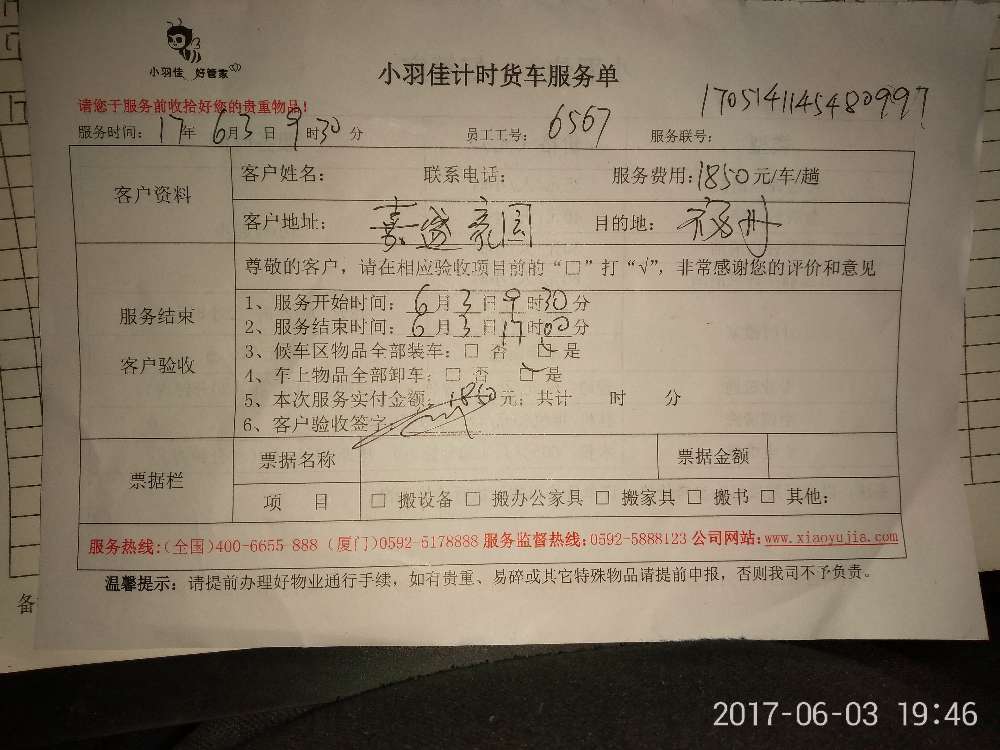 小羽佳 好管家
小羽佳计时货车服务单
请您于服务前收拾好您的贵重物品!
服务时间: 17年 6月3日 9时30分 员工工号: 6567 服务联号: 1705141145480997
客户资料 客户姓名: 联系电话: 服务费用:1850元/车/趟
客户地址: 嘉盛豪园 目的地:
尊敬的客户,请在相应验收项目前的“□”打“√”,非常感谢您的评价和意见
服务结束
客户验收
1、服务开始时间: 6月3日9时30分
2、服务结束时间: 6月3日17时00分
3、候车区物品全部装车:□ 否 □ 是
4、车上物品全部卸车:□ 否 □ 是
5、本次服务实付金额:1850元;共计 时 分
6、客户验收签字:
票据栏 票据名称 票据金额
项 目 □ 搬设备 □ 搬办公家具 □ 搬家具 □ 搬书 □ 其他:
服务热线:(全国)400-6655-888 (厦门)0592-5178888 服务监督热线:0592-5888123 公司网站:www.xiaoyujia.com
温馨提示:请提前办理好物业通行手续,如有贵重、易碎或其它特殊物品请提前申报,否则我司不予负责。
备
2017-06-03 19:46